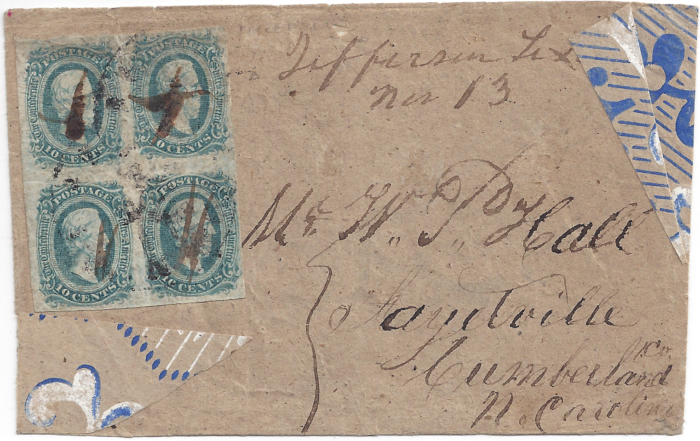 POSTAGE
10 CENTS
POSTAGE
10 CENTS
POSTAGE
10 CENTS
POSTAGE
10 CENTS
Jefferson Tex
Nov 13
Mr W. P. Hall
Fayetville
Cumberland Co
N. Carolina